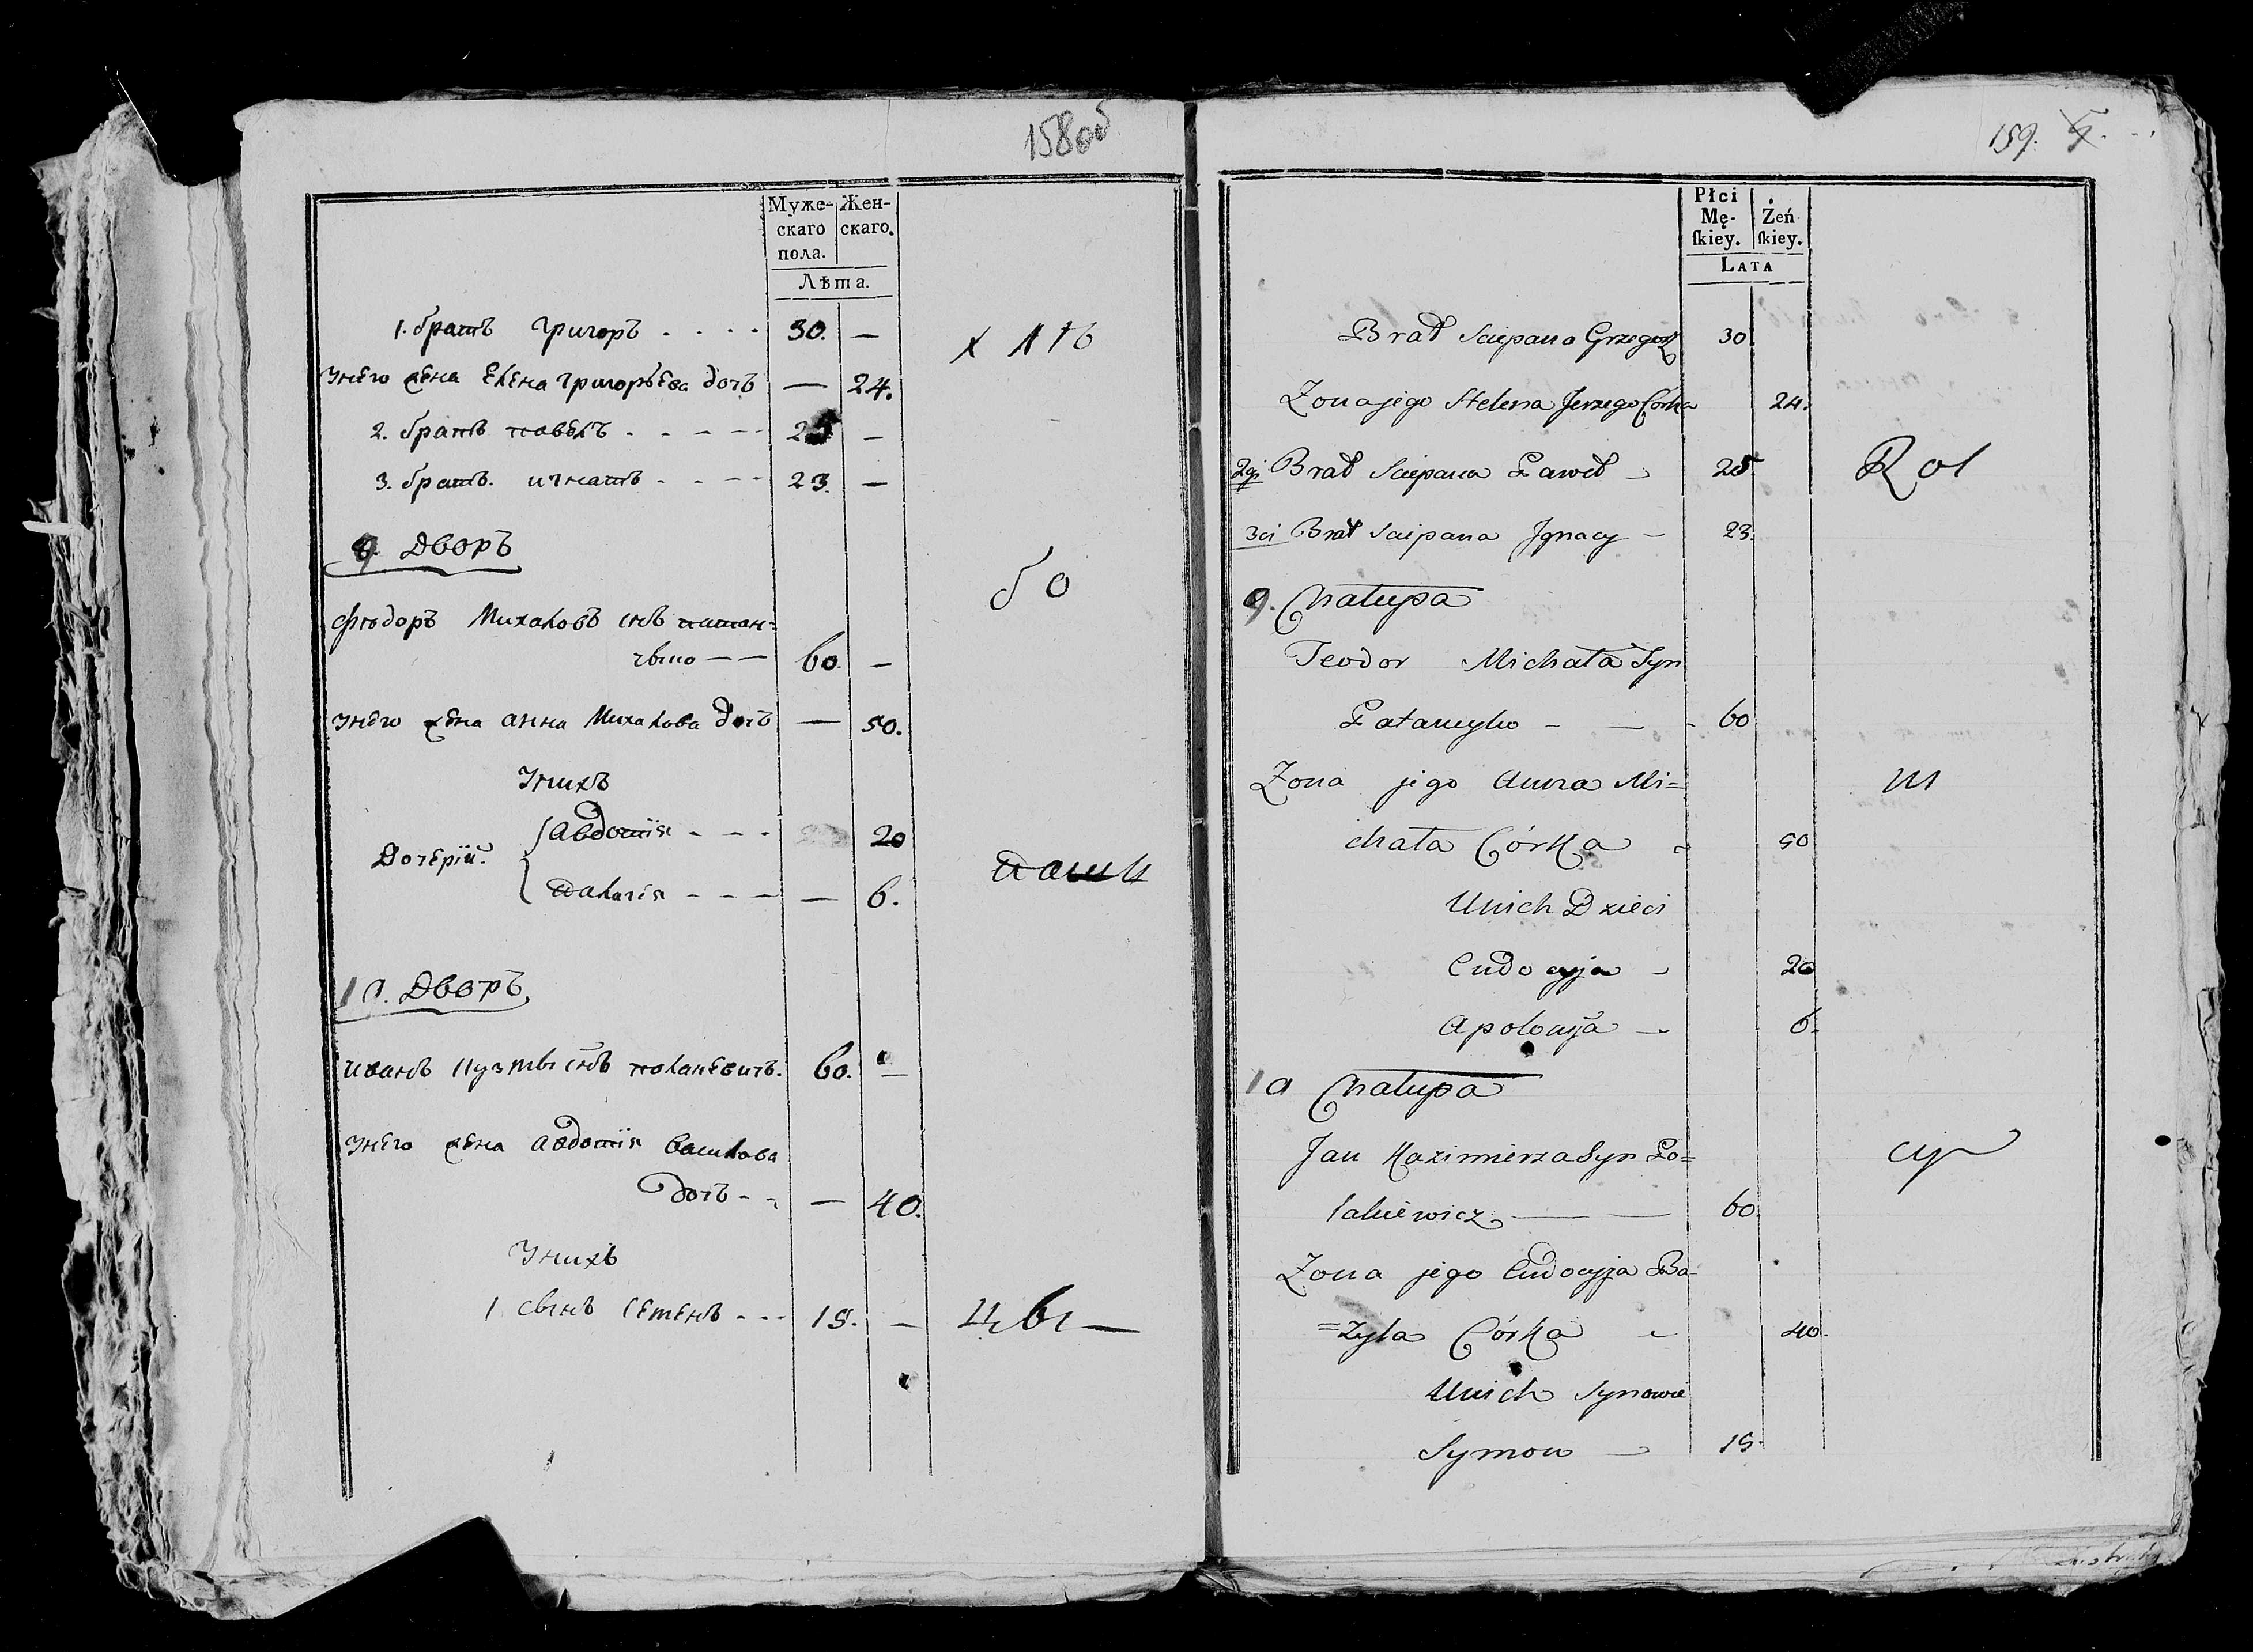 158 об
Муже- Жен-
скаго скаго.
пола.
Лѣта.
1. братъ григоръ 30. —
унего жена Елена григоръева дочъ — 24.
2. братъ павелъ 25 —
3. братъ. игнатъ 23. —
9. Дворъ
фѣодоръ Михаловъ снъ
60. —
унего жена анна Михалова дочъ — 50.
Унихъ
Авдотія 20
Дочерій:
Палагія — 6.
10. Дворъ
иванъ снъ поланевичъ. 60. —
унего жена Авдотія василова
дочъ — 40.
Унихъ
1 сынъ семенъ 15. —
хлѣб
бо
паши
цы
159.
Płci
Mę- Żeń
skiey. skiey.
LATA
Brat Sciepana Grzegorz 30
Zona jego Helena Jerzego Córka 24.
2gi Brat Sciepana Paweł 25
3ci Brat Sciepana Jgnacy 23.
9. Chałupa
Teodor Michała Syn
60
Zona jego Anna Mi=
chała Córka 50
Unich Dzieci
Eudocyja 20
Apolonija 6.
10 Chałupa
Jan Kazimierza Syn Po=
laniewicz 60.
Zona jego Eudocyja Ba-
=zyla Córka 40.
Unich Synowie
Symon 15.
Rol
ni
cy